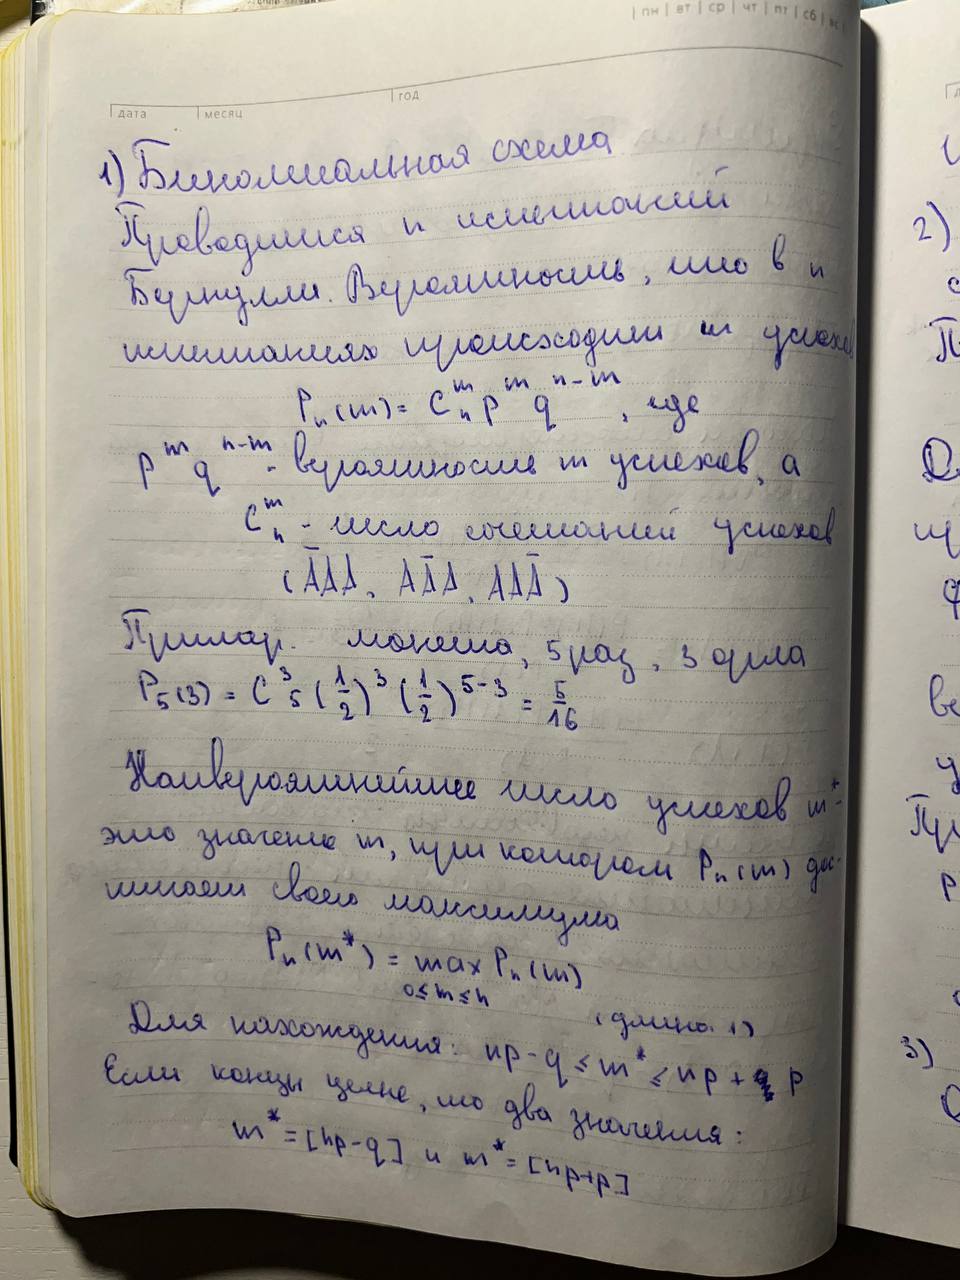 пн вт ср чт пт сб вс
дата месяц год
1) Биномиальная схема
Проводится n испытаний
Бернулли. Вероятность, что в n
испытаниях происходит m успехов
Pₙ(m) = Cₙᵐ pᵐ qⁿ⁻ᵐ, где
pᵐ qⁿ⁻ᵐ - вероятность m успехов, а
Cₙᵐ - число сочетаний успехов
(ĀAA, AĀA, AAĀ)
Пример. монета, 5 раз, 3 орла
P₅(3) = C₅³ (1/2)³ (1/2)⁵⁻³ = 5/16
Наивероятнейшее число успехов m* -
это значение m, при котором Pₙ(m) дос-
тигает своего максимума
Pₙ(m*) = max Pₙ(m)
0≤m≤n
(длина 1)
Для нахождения: np - q ≤ m* ≤ np + p
Если концы целые, то два значения:
m* = [np-q] и m* = [np+p]
2)
3)